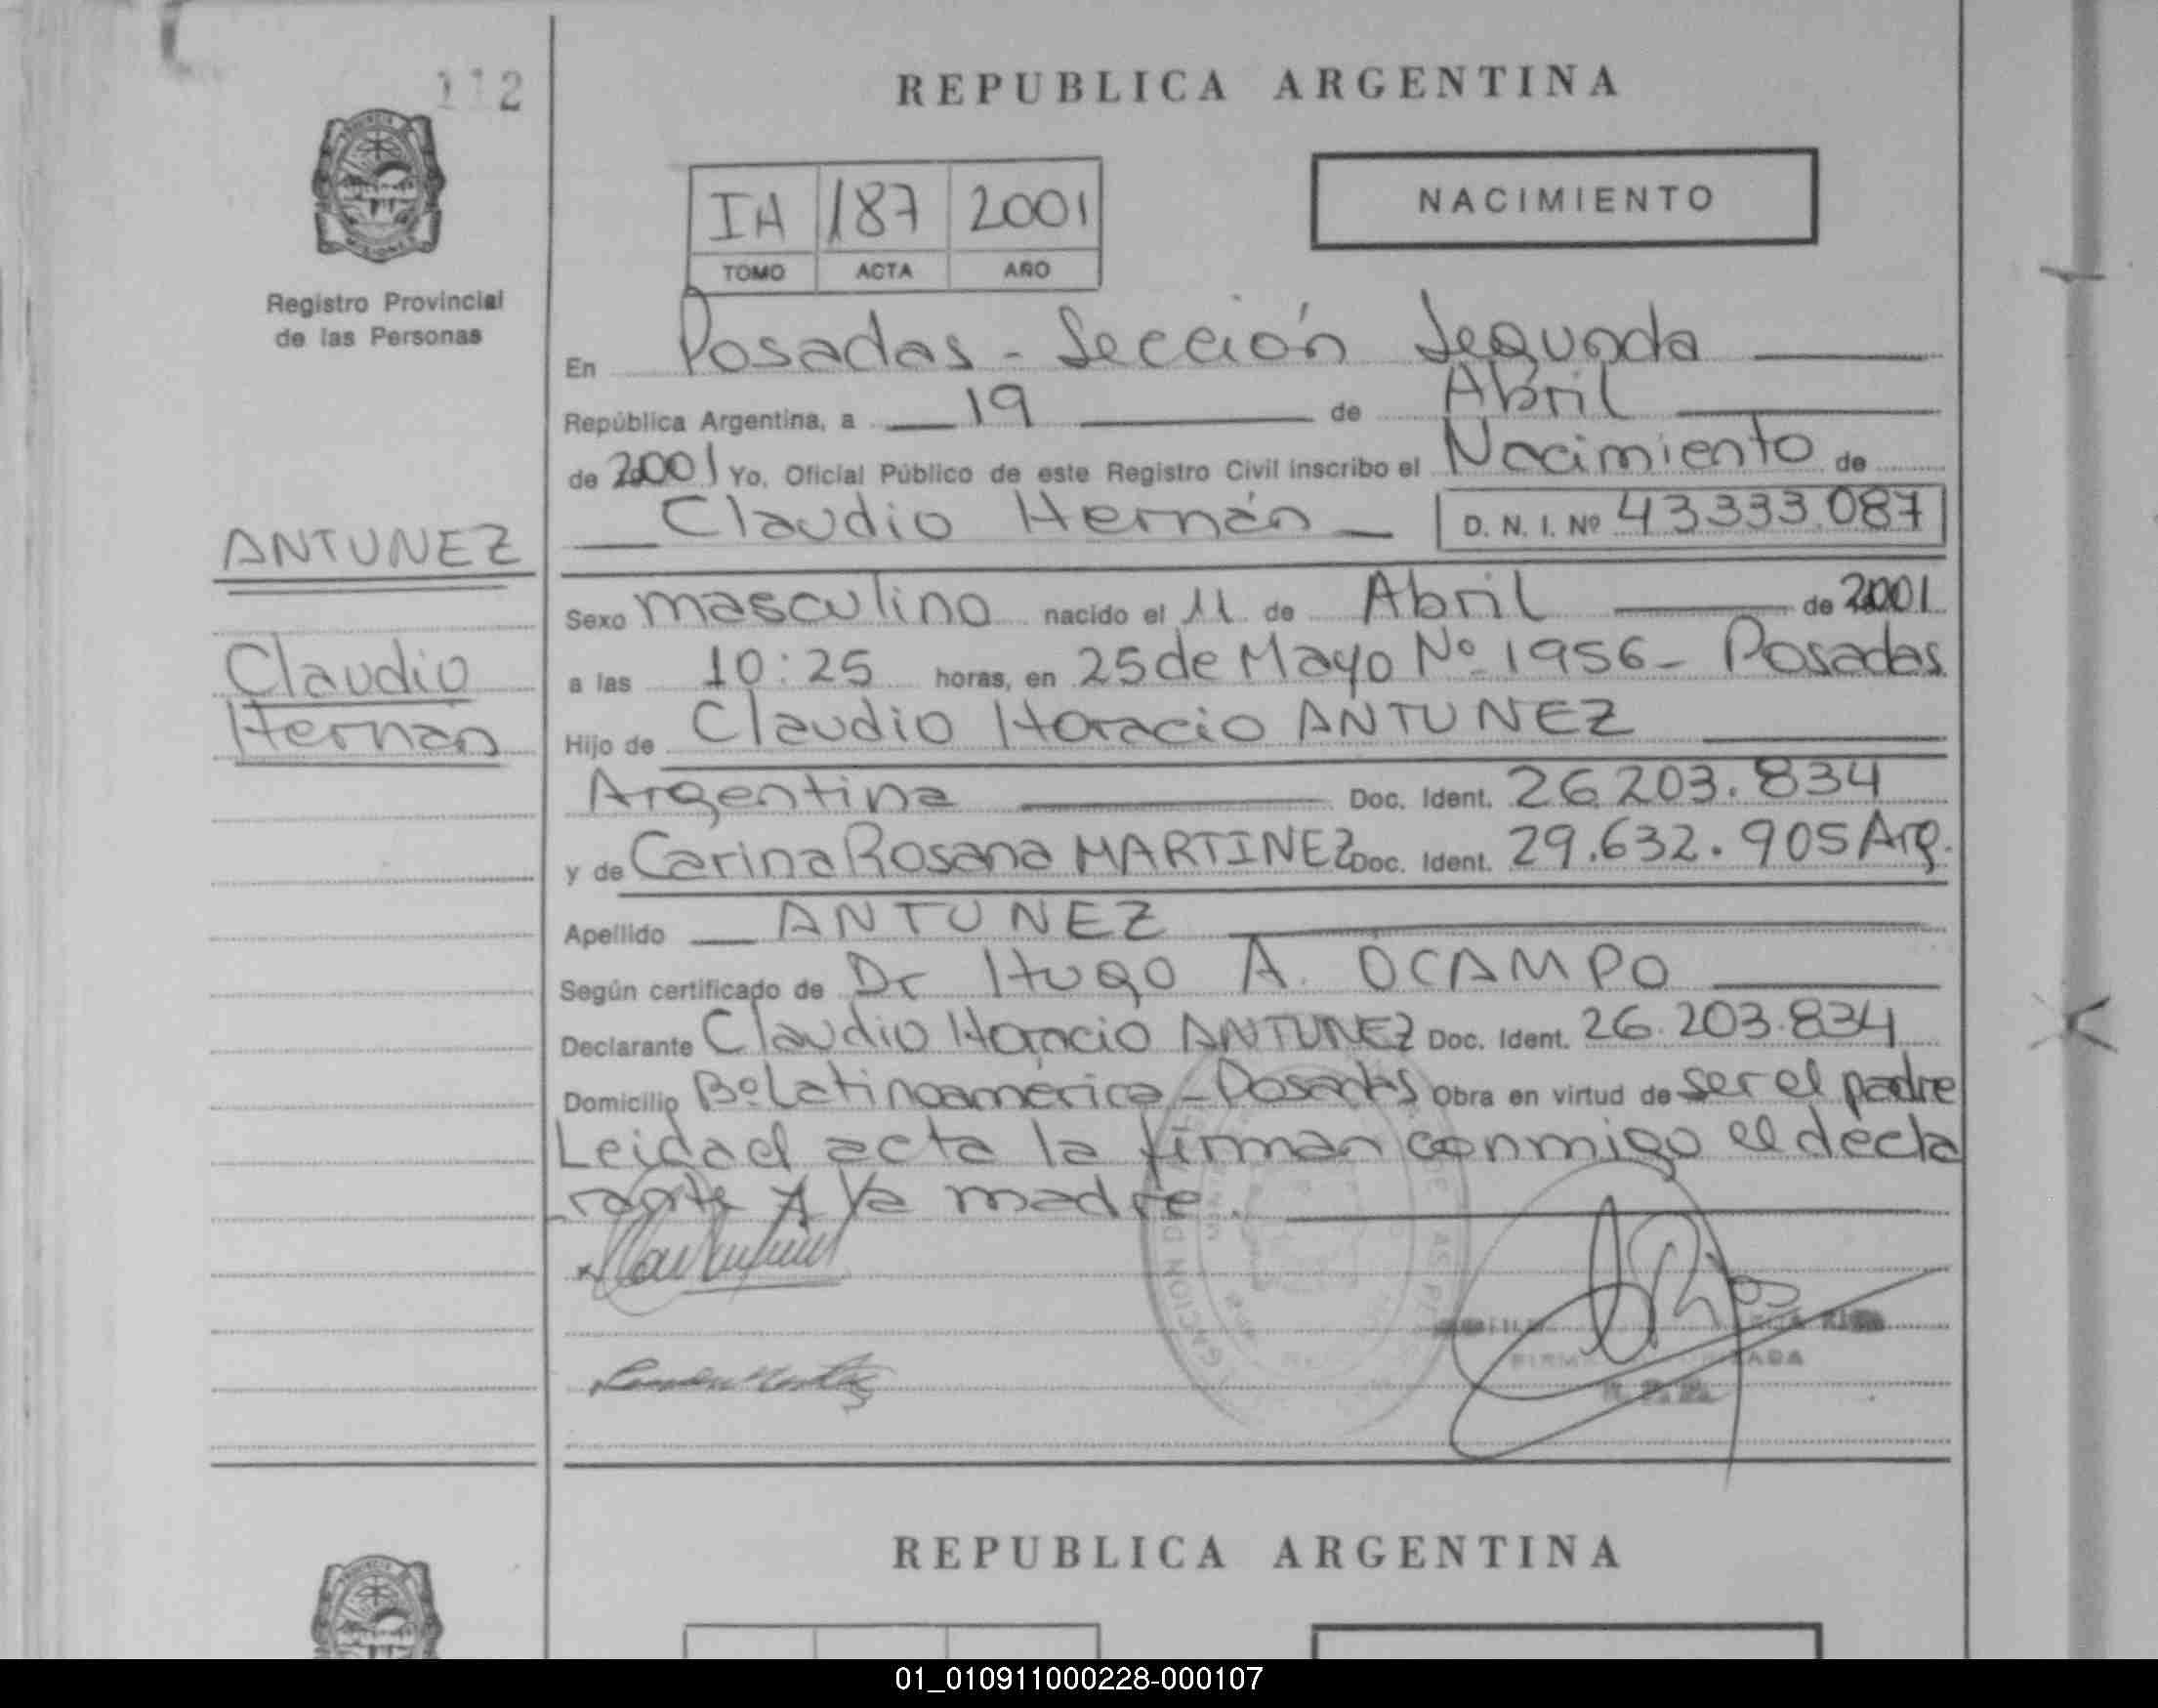 112
REPUBLICA ARGENTINA
IA 187 2001
TOMO ACTA AÑO
NACIMIENTO
Registro Provincial
de las Personas
En Posadas - Sección Segunda
República Argentina, a 19 de Abril
de 2001 Yo, Oficial Público de este Registro Civil inscribo el Nacimiento de
Claudio Hernán D. N. I. Nº 43333.087
ANTUNEZ
Claudio
Hernán
Sexo masculino nacido el 11 de Abril de 2001
a las 10:25 horas, en 25 de Mayo Nº 1956 - Posadas
Hijo de Claudio Horacio ANTUNEZ
Argentina Doc. Ident. 26.203.834
y de Carina Rosana MARTINEZ Doc. Ident. 29.632.905 Arg.
Apellido ANTUNEZ
Según certificado de Dr Hugo A. OCAMPO
Declarante Claudio Horacio ANTUNEZ Doc. Ident. 26.203.834
Domicilio Bº Latinoamérica - Posadas Obra en virtud de ser el padre
Leida el acta la firman conmigo el decla
rante y la madre.
REPUBLICA ARGENTINA
01_010911000228-000107